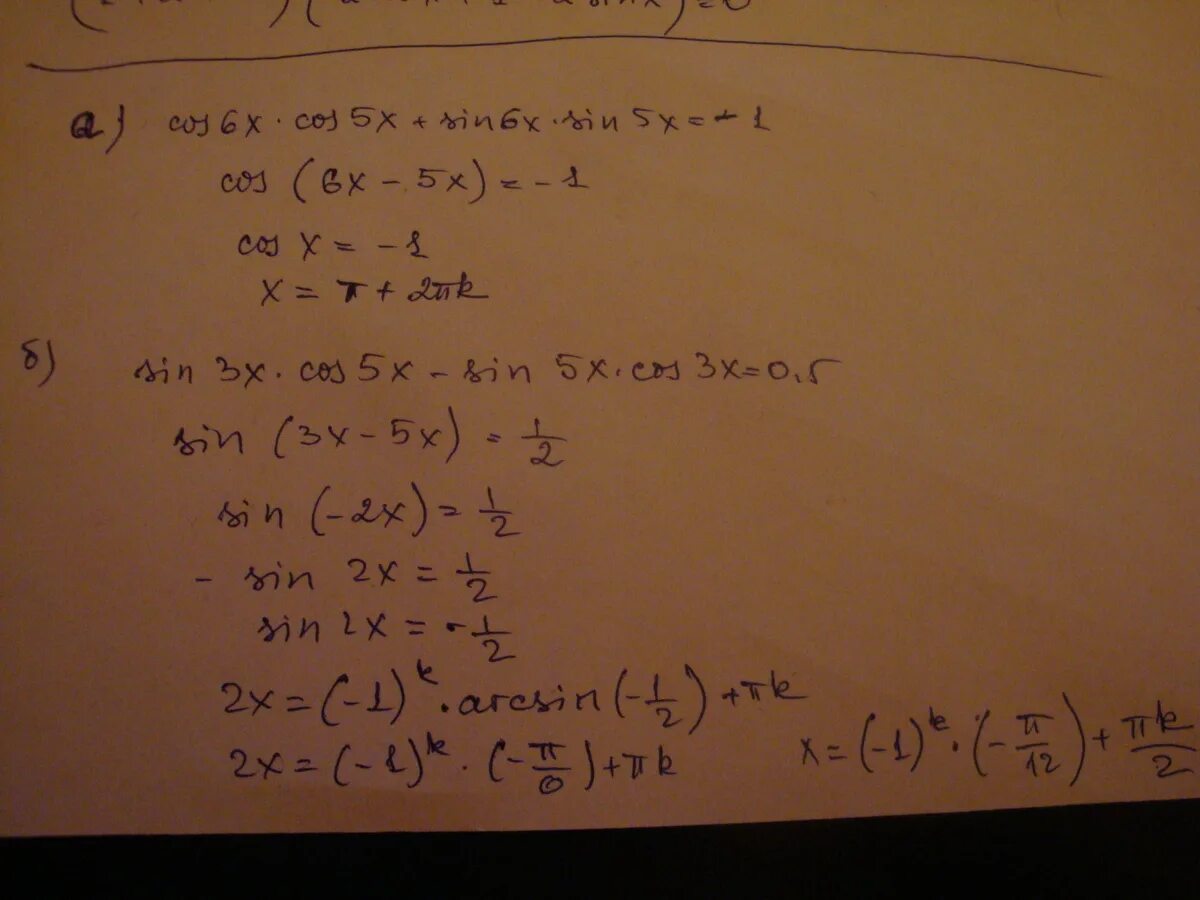 а) cos 6x · cos 5x + sin 6x · sin 5x = -1
cos (6x - 5x) = -1
cos x = -1
x = π + 2πk
б) sin 3x · cos 5x - sin 5x · cos 3x = 0,5
sin (3x - 5x) = 1/2
sin (-2x) = 1/2
- sin 2x = 1/2
sin 2x = -1/2
2x = (-1)^k · arcsin (-1/2) + πk
2x = (-1)^k · (-π/6) + πk
x = (-1)^k · (-π/12) + πk/2